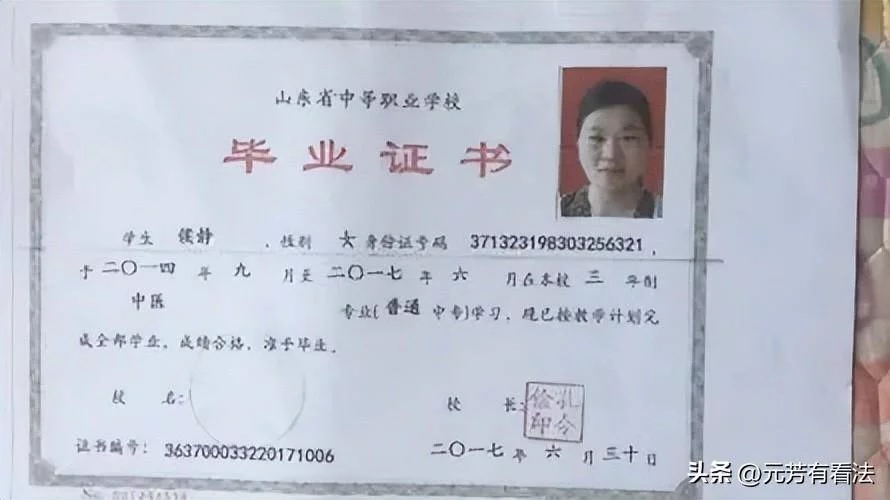 山东省中等职业学校
毕业证书
学生 侯静 ，性别 女 身份证号码 371323198303256321，
于 二〇一四 年 九 月至 二〇一七 年 六 月在本校 三 年制
中医 专业(普通中专)学习，现已按教学计划完
成全部学业，成绩合格，准予毕业。
校 名：
校 长：
证书编号：363700033220171006
二〇一七 年 六 月 三十 日
头条 @元芳有看法